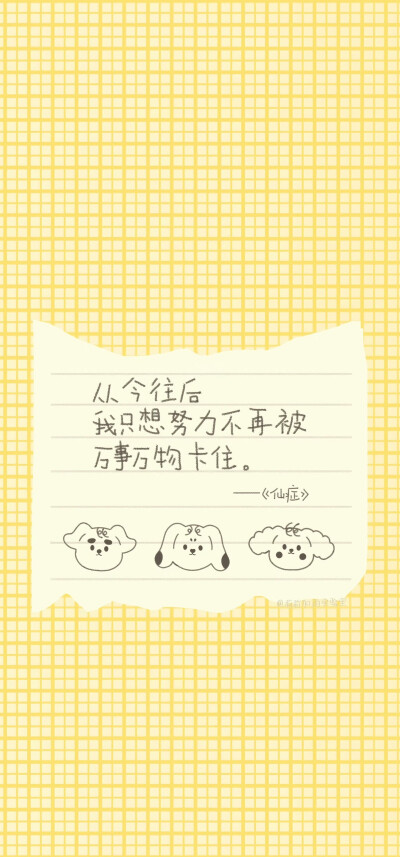 从今往后
我只想努力不再被
万事万物卡住。
——《仙症》